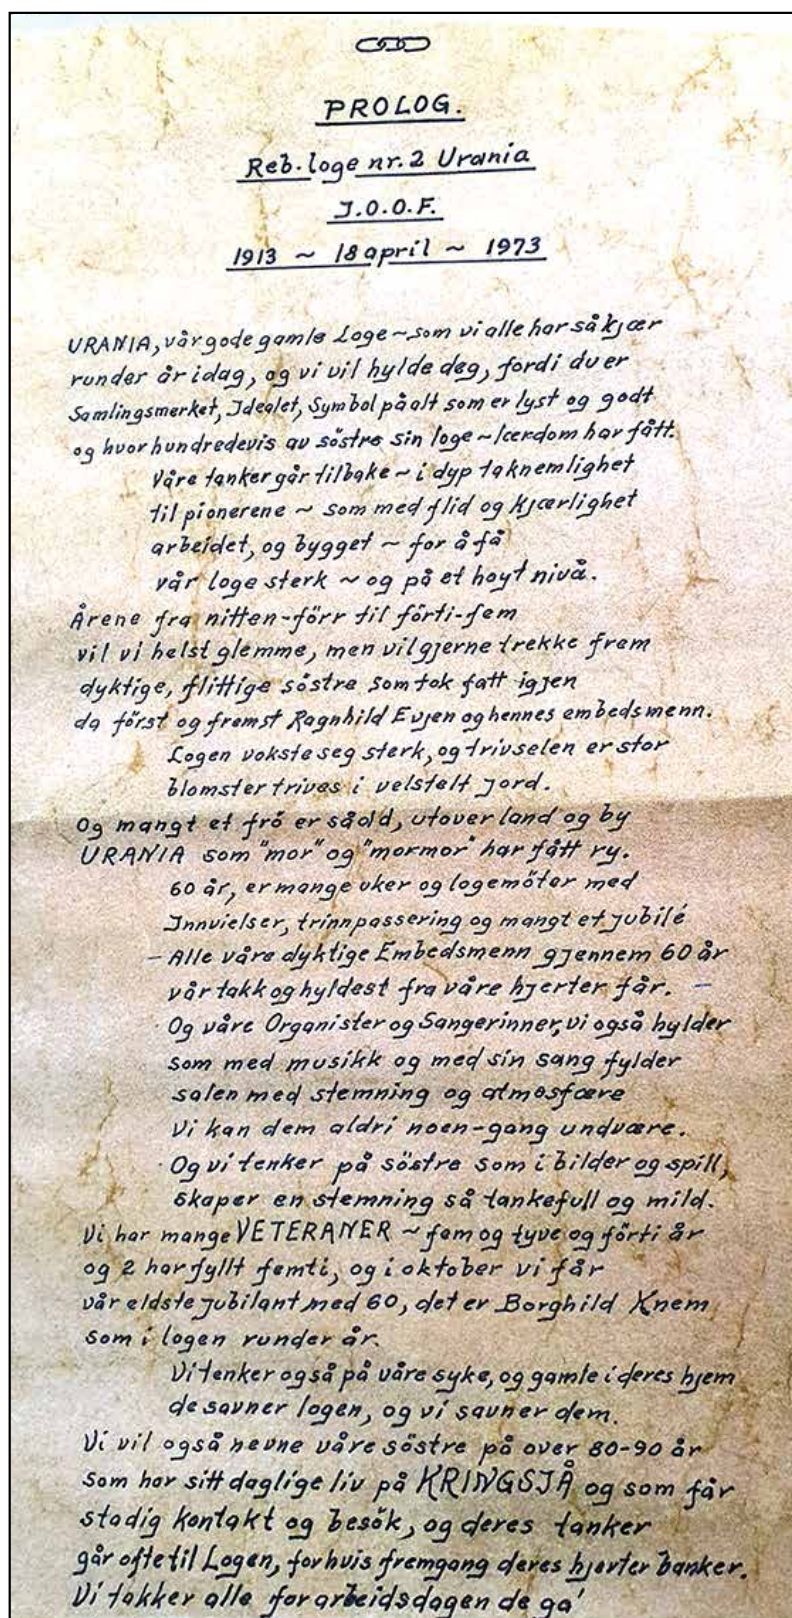 PROLOG.
Reb.loge nr. 2 Urania
I.O.O.F.
1913 ~ 18 april ~ 1973
URANIA, vår gode gamle Loge ~ som vi alle har så kjær
runder år idag, og vi vil hylde deg, fordi du er
Samlingsmerket, Idealet, Symbol på alt som er lyst og godt
og hvor hundredevis av söstre sin loge ~ lærdom har fått.
Våre tanker går tilbake ~ i dyp taknemlighet
til pionerene ~ som med flid og kjærlighet
arbeidet, og bygget ~ for å få
vår loge sterk ~ og på et hoyt nivå.
Årene fra nitten-förr til förti-fem
vil vi helst glemme, men vil gjerne trekke frem
dyktige, flittige söstre som tok fatt igjen
da först og fremst Ragnhild Evjen og hennes embedsmenn.
Logen vokste seg sterk, og trivselen er stor
blomster trives i velstelt jord.
Og mangt et frö er sådd, utover land og by
URANIA som "mor" og "mormor" har fått ry.
60 år, er mange uker og logemöter med
Innvielser, trinnpassering og mangt et jubilé
- Alle våre dyktige Embedsmenn gjennem 60 år
vår takk og hyldest fra våre hjerter får. -
Og våre Organister og Sangerinner, vi også hylder
som med musikk og med sin sang fylder
salen med stemning og atmosfære
Vi kan dem aldri noen-gang undvære.
Og vi tenker på söstre som i bilder og spill,
skaper en stemning så tankefull og mild.
Vi har mange VETERANER ~ fem og tyve og förti år
og 2 har fyllt femti, og i oktober vi får
vår eldste jubilant med 60, det er Borghild Knem
som i logen runder år.
Vi tenker også på våre syke, og gamle i deres hjem
de savner logen, og vi savner dem.
Vi vil også nevne våre söstre på over 80-90 år
som har sitt daglige liv på KRINGSJÅ og som får
stadig kontakt og besök, og deres tanker
går ofte til Logen, for hvis fremgang deres hjerter banker.
Vi takker alle for arbeidsdagen de ga'